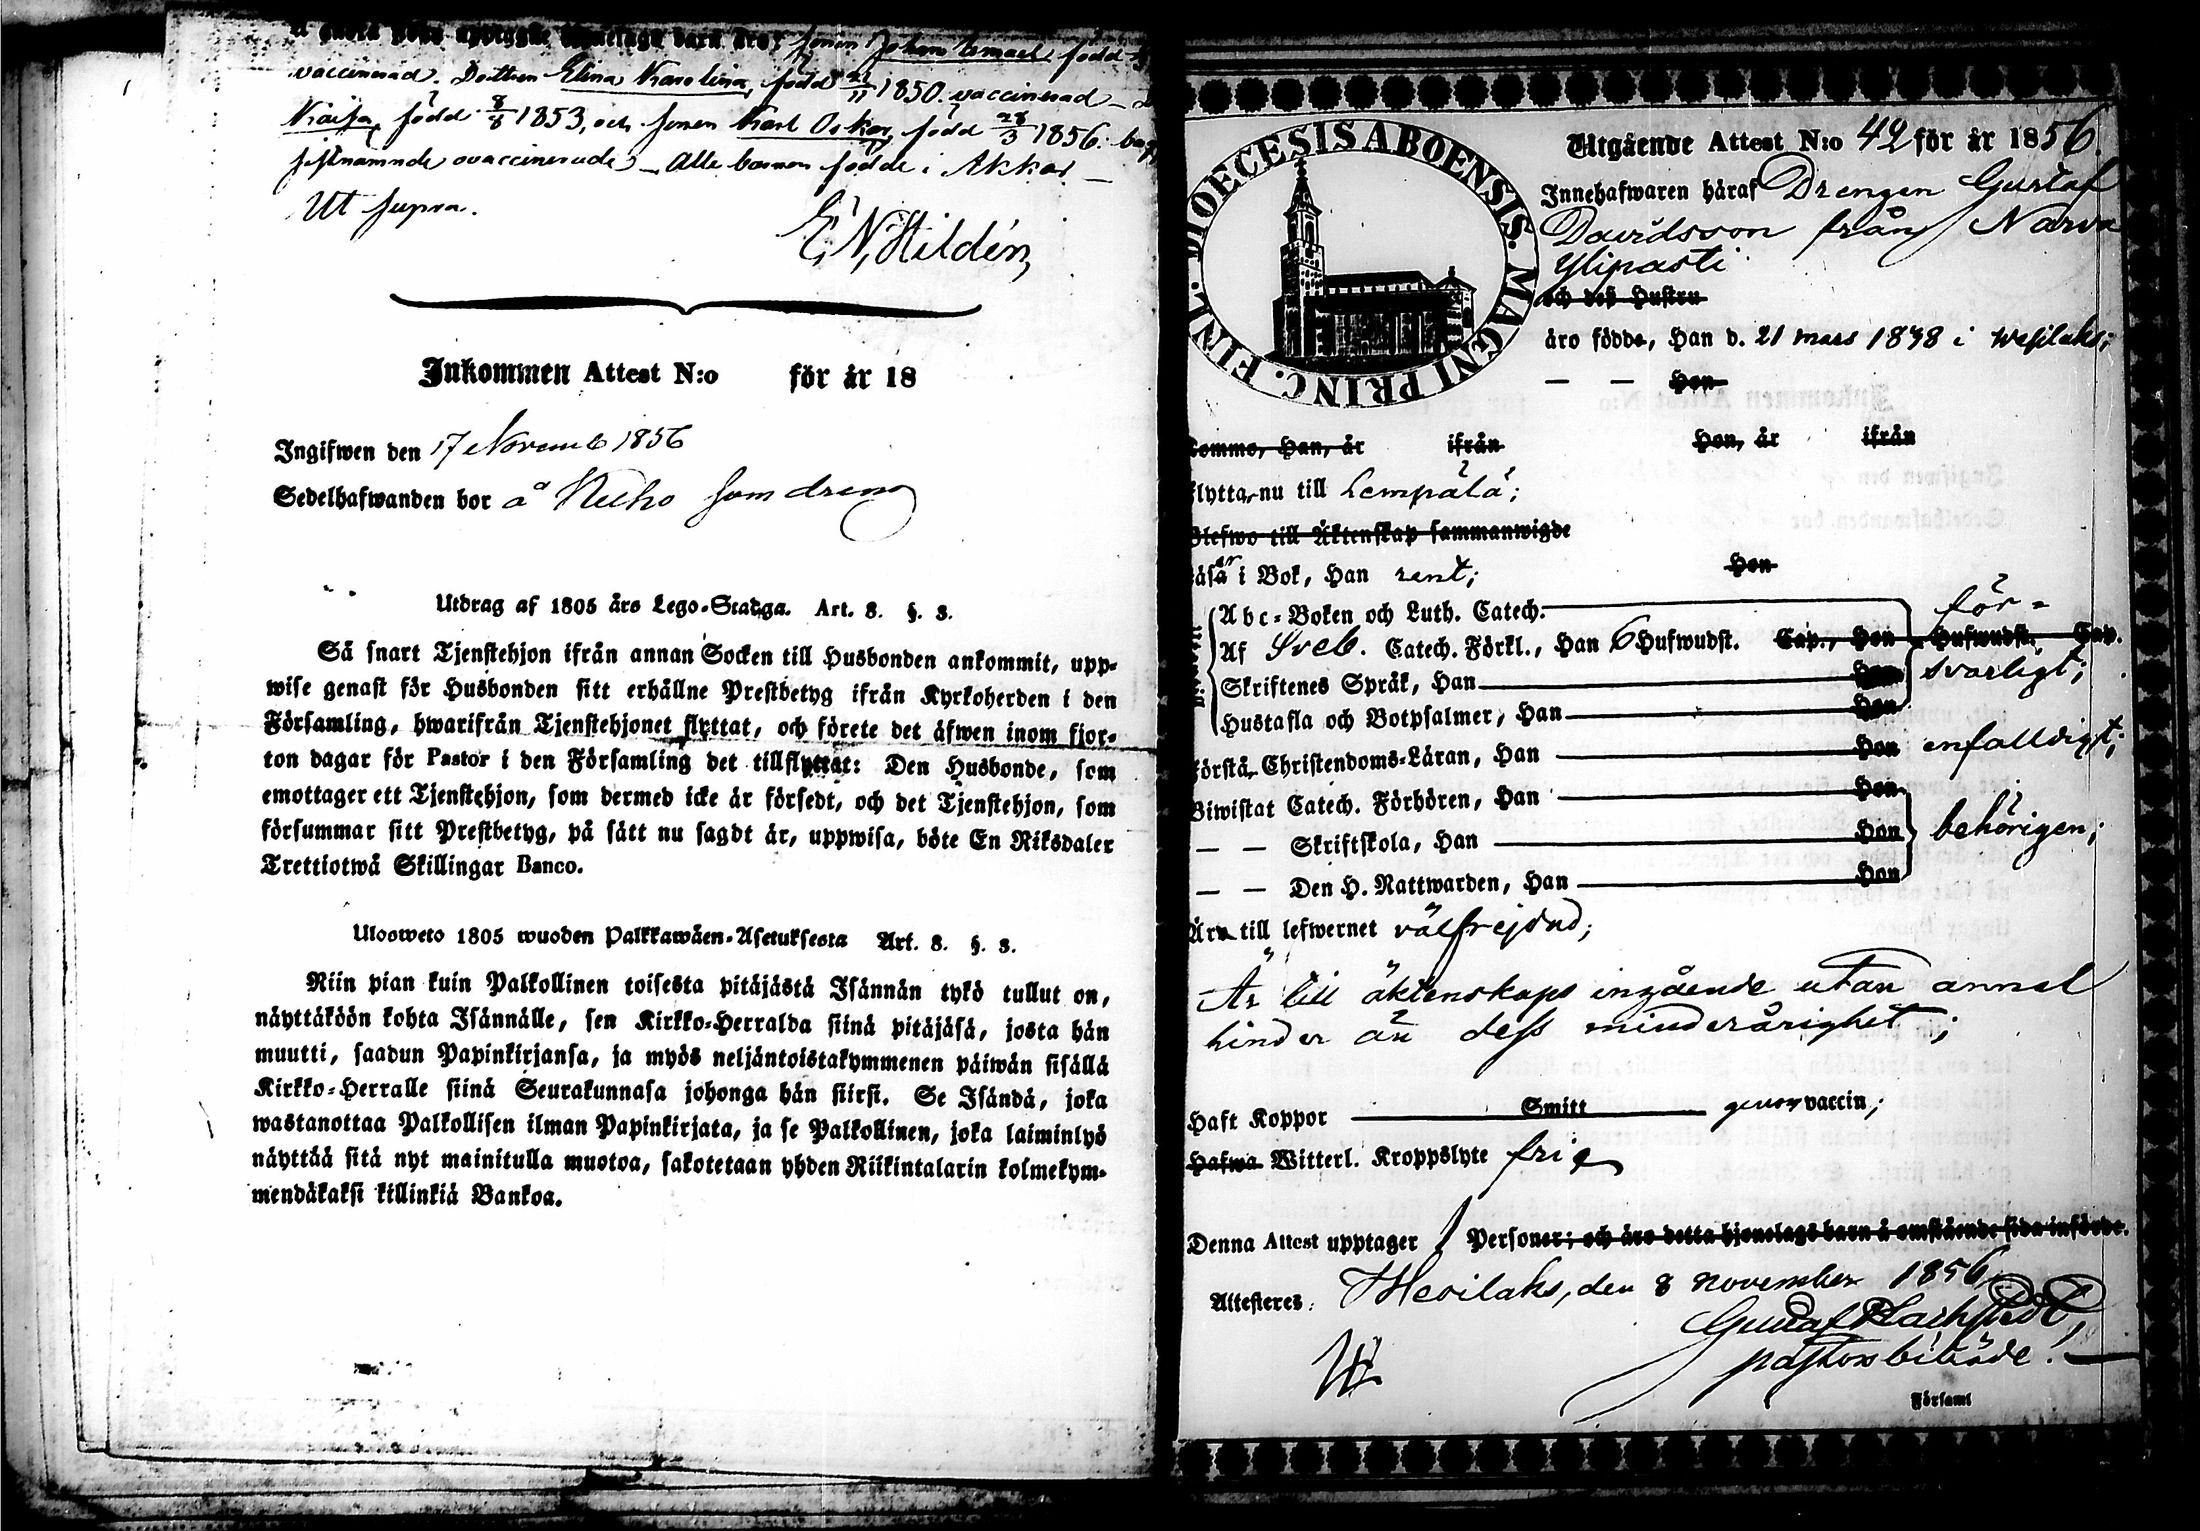 å andra sida upptagne hjonelags barn äro: sonen Johan Ismael, född
vaccinerad. Dottren Elina Karolina, född 21/11 1850. vaccinerad –
Kaisa, född 8/8 1853, och sonen Karl Oskar, född 28/3 1856.
sistnämnde ovaccinerade – Alla barnen födde i Akkas –
Ut supra.
E. N. Hildén,
Inkommen Attest N:o för år 18
Ingifwen den 17 Novemb 1856
Sedelhafwanden bor å Kuho som dreng
Utdrag af 1805 års Lego-Stadga. Art. 8. §. 3.
Så snart Tjenstehjon ifrån annan Socken till Husbonden ankommit, upp-
wise genast för Husbonden sitt erhållne Prestbetyg ifrån Kyrkoherden i den
Församling, hwarifrån Tjenstehjonet flyttat, och förete det äfwen inom fjor-
ton dagar för Pastor i den Församling det tillflyttat: Den Husbonde, som
emottager ett Tjenstehjon, som dermed icke är försedt, och det Tjenstehjon, som
försummar sitt Prestbetyg, på sätt nu sagdt är, uppwisa, böte En Riksdaler
Trettiotwå Skillingar Banco.
Ulosweto 1805 wuoden Palkkawäen-Asetuksesta Art. 8. §. 3.
Niin pian kuin Palkollinen toisesta pitäjästä Isännän tykö tullut on,
näyttäköön kohta Isännälle, sen Kirkko-Herralda siinä pitäjäsä, josta hän
muutti, saadun Papinkirjansa, ja myös neljäntoistakymmenen päiwän sisällä
Kirkko-Herralle siinä Seurakunnasa johonga hän siirsi. Se Isändä, joka
wastanottaa Palkollisen ilman Papinkirjata, ja se Palkollinen, joka laiminlyö
näyttää sitä nyt mainitulla muotoa, sakotetaan yhden Riikintalarin kolmekym-
mendäkaksi killinkiä Bankoa.
DIOECESIS ABOENSIS. MAGNI PRINC. FINL.
Utgående Attest N:o 42 för år 1856
Innehafwaren häraf Drengen Gustaf
Davidsson från Narva
Ylipasti
och dess Hustru
äro födde, Han d. 21 mars 1838 i Wesilaks;
— — Hon
komme, Han, år ifrån Hon, år ifrån
flytta nu till Lempälä;
Blefwo till Äktenskap sammanwigde
Läser i Bok, Han rent; Hon
Abc-Boken och Luth. Catech.
Af Sveb. Catech. Förkl., Han 6 Hufwudst. Cap., Hon Hufwudst. Cap.
för-
Skriftenes Språk, Han Hon svarligt;
Hustafla och Botpsalmer, Han Hon
Förstå Christendoms-Läran, Han Hon enfalldigt;
Biwistat Catech. Förhören, Han Hon
— — Skriftskola, Han Hon behörigen;
— — Den H. Nattwarden, Han Hon
Äro till lefwernet välfrejdad;
Är till äktenskaps ingående utan annat
hinder än dess minderårighet;
Haft Koppor Smitt genom vaccin;
Hafwa Witterl. Kroppslyte fri
Denna Attest upptager 1 Personer; och äro detta hjonelags barn å omstående sida införde.
Attesteres: Wesilaks, den 8 November 1856.
Gustaf
pastorsbiträde.
Församl